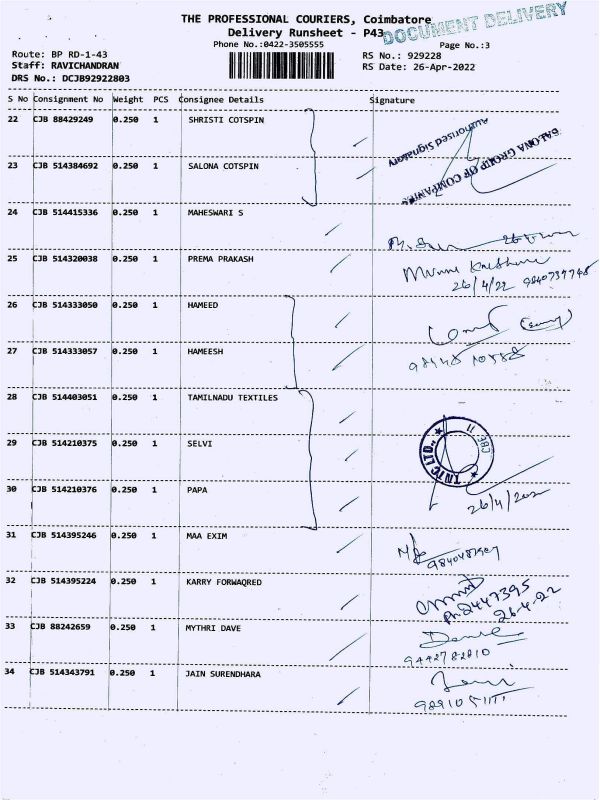 THE PROFESSIONAL COURIERS, Coimbatore
Delivery Runsheet - P43
DOCUMENT DELIVERY
Phone No.:0422-3505555
Page No.:3
Route: BP RD-1-43
RS No.: 929228
Staff: RAVICHANDRAN
RS Date: 26-Apr-2022
DRS No.: DCJB92922803
S No Consignment No Weight PCS Consignee Details Signature
22 CJB 88429249 0.250 1 SHRISTI COTSPIN
Authorised Signatory
SALONA GROUP OF COMPANIES
23 CJB 514384692 0.250 1 SALONA COTSPIN
24 CJB 514415336 0.250 1 MAHESWARI S
25 CJB 514320038 0.250 1 PREMA PRAKASH
26/4/22
26 CJB 514333050 0.250 1 HAMEED
27 CJB 514333057 0.250 1 HAMEESH
28 CJB 514403051 0.250 1 TAMILNADU TEXTILES
29 CJB 514210375 0.250 1 SELVI
30 CJB 514210376 0.250 1 PAPA
31 CJB 514395246 0.250 1 MAA EXIM
32 CJB 514395224 0.250 1 KARRY FORWAQRED
Ph: 2447395
26-4-22
33 CJB 88242659 0.250 1 MYTHRI DAVE
9442782810
34 CJB 514343791 0.250 1 JAIN SURENDHARA